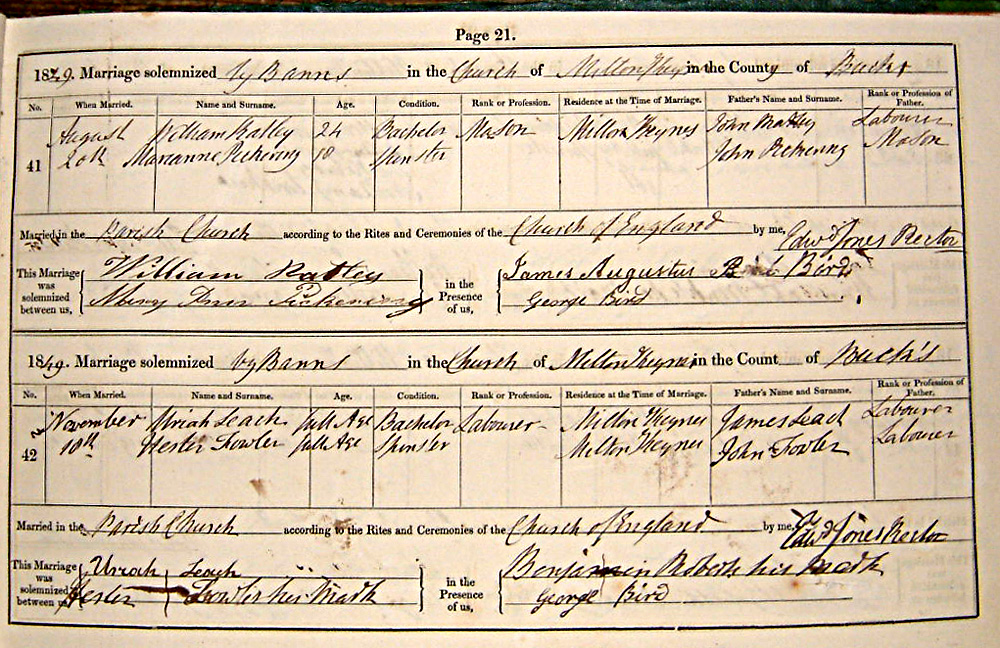 Page 21.
1849. Marriage solemnized by Banns in the Church of Milton Keynes in the County of Bucks
No. When Married. Name and Surname. Age. Condition. Rank or Profession. Residence at the Time of Marriage. Father's Name and Surname. Rank or Profession of Father.
August William Ratley 24 Bachelor Mason Milton Keynes John Ratley Labourer
41 20th Marianne Pickering 18 Spinster John Pickering Mason
Married in the Parish Church according to the Rites and Ceremonies of the Church of England by me, Edwd Jones Rector
This Marriage was solemnized between us, William Ratley in the Presence of us, James Augustus Bird
Mary Ann Pickering George Bird
1849. Marriage solemnized by Banns in the Church of Milton Keynes in the Count of Buck's
No. When Married. Name and Surname. Age. Condition. Rank or Profession. Residence at the Time of Marriage. Father's Name and Surname. Rank or Profession of Father.
November Uriah Leach full Age Bachelor Labourer Milton Keynes James Leach Labourer
42 10th Hester Fowler full Age Spinster Milton Keynes John Fowler Labourer
Married in the Parish Church according to the Rites and Ceremonies of the Church of England by me, Edwd Jones Rector
This Marriage was solemnized between us, Uriah Leach in the Presence of us, Benjamin Roberts his Mark
Hester Fowler her Mark George Bird